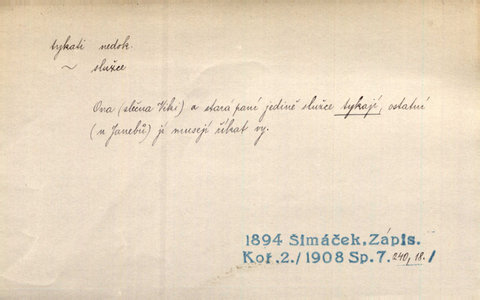 tykati nedok.
~ služce
Ona (slečna Viki) a stará paní jedině služce tykají, ostatní
(u Janebů) jí musejí říkat vy.
1894 Šimáček, Zápis.
Koř. 2./1908 Sp. 7. 240, 18. /